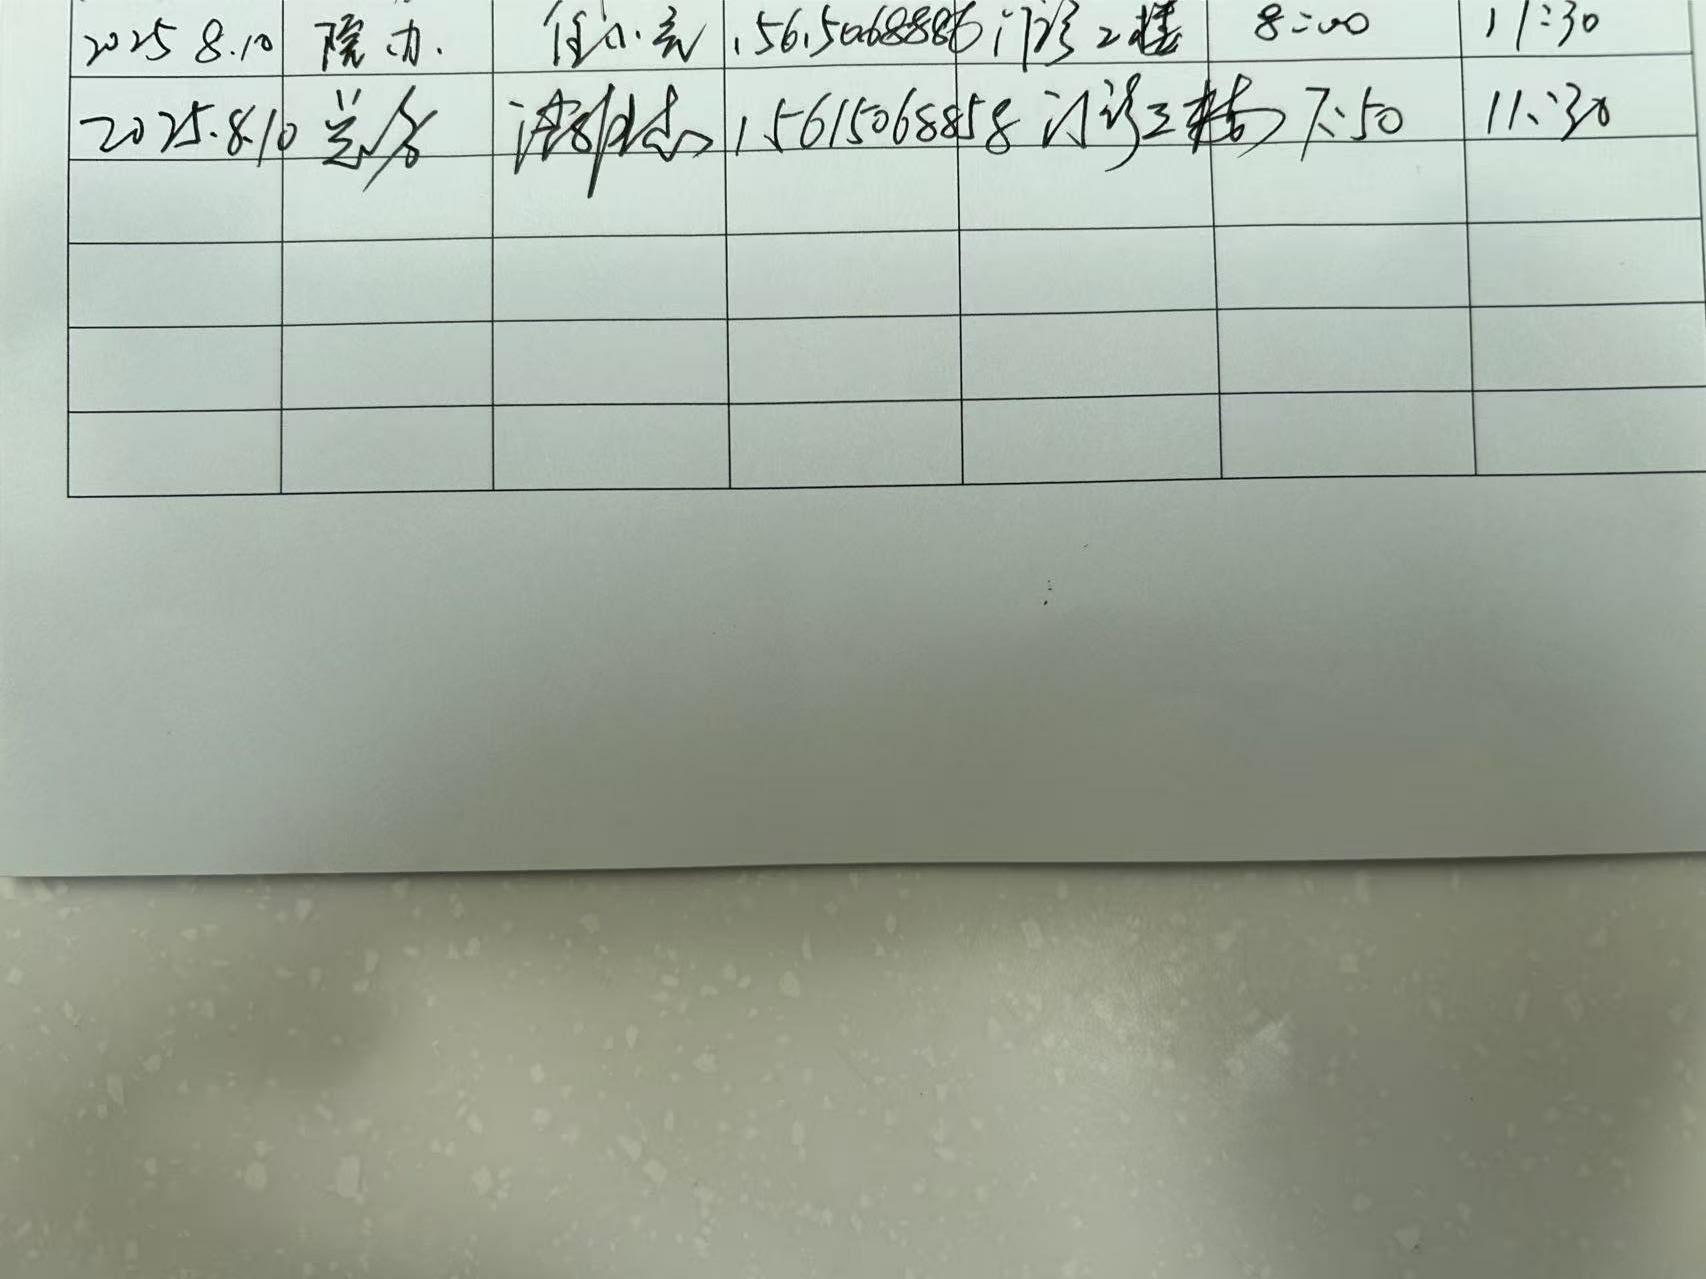 2025 8.10 院办. 任小亮 15615068886 门诊2楼 8:00 11:30
2025.8.10 总务 15615068858 门诊三楼 7:50 11:30